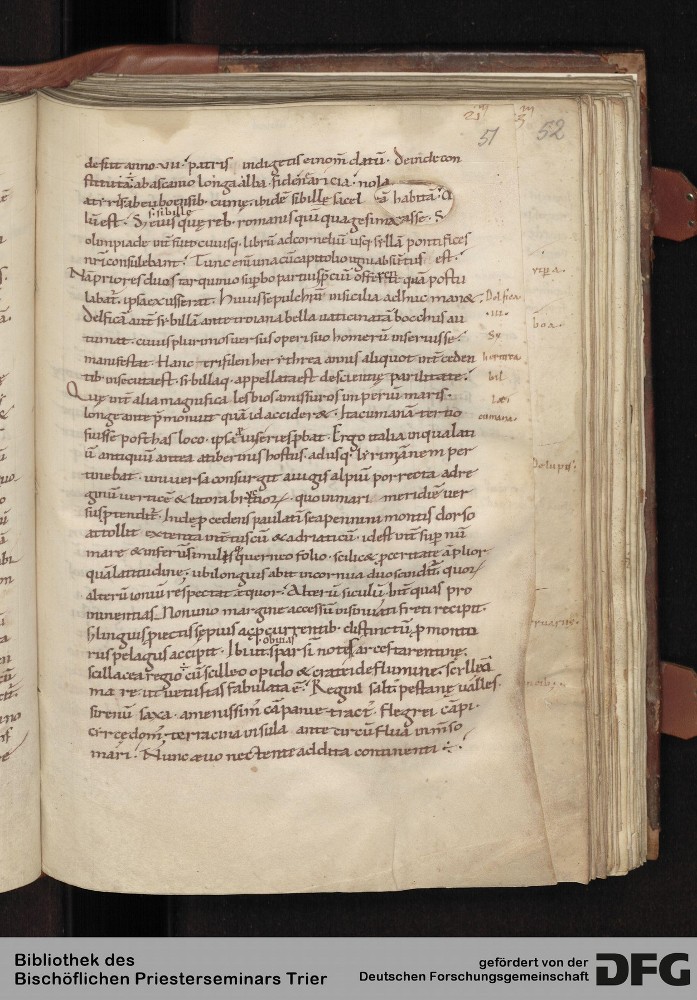 51 52
desiit anno · vii · patris indigetis ei nom̄ datū · Deinde con
stituta ab ascanio longa alba · fidenę aricia · nola
a tyriis ab euboensib · cumę · ibidē sibillę sacel ā habitā · Q
lū est · s · sibille
Sꝫ eius quę reb · romanis quinquagesima asse · S
olimpiade int̄fuit cuiusq · librū ad cornelium usq syllā pontifices
nr̄i consulebant · Tunc enim una cū capitolio igni absūptus est ·
Nā priores duos tarquinio suꝑbo partius p̄ciū offerente quā postu
labat · ipsa exusserat · Huius sepulchrū in sicilia adhuc manꝫ
Delficā aut̄ sybillā ante troiana bella uaticinatā bocchus au
tumat · cuius plurimos uersus operi suo homerū inseruisse ·
manifestat · Hanc
annis aliquot int̄ceden
tib insecuta est · sibillaq · appellata est de scientię parilitate ·
Quę int̄ alia magnifica lesbios amissuros imperiū maris ·
longe ante p̄monuit quā id accideret · Ita cumanā tertio
fuisse post has loco · ipsa
Ergo italia in qua lati
ū antiquū antea a tiberinis hostiis · ad usq · lyrim amnem per
tinebat · uniuersa consurgit a iugis alpiū porrecta · ad re
ginū uerticē & litora bruttiorꝝ · quo in mari meridiē uer
sus p̄tendit̄ · Inde ꝓcedens paulatī se apennini montis dorso
attollit extenta int̄ tuscū & adriaticū · id est int̄ suꝑ nū
mare & inferū similis querneo folio · scilicet ꝓceritate āplior
quā latitudine · ubi longius abit in cornua duo scindit̄ · quorꝝ
alterū ioniū respectat ęquor · Alterū siculū · int̄ quas pro
minentias · Non uno margine accessū insinuati freti recipit ·
sꝫ linguis ꝓiectis sępius ac ꝓcurrentib · distinctū ꝓmontu
· obuia
riis pelagus accipit · Ibi ut sparsī
arces tarentinę ·
scillacea regio cū scilleo opido & crateide flumine · scyllęi
ma re ut uetustas fabulata ē · Regini saltū pestanę ualles ·
sirenū saxa · amenissim̄ cāpanię tract · flegrei cāpi ·
circe dom̄ · terracina insula ante circūflua inm̄so
mari · Nunc æuo nectente addita continenti ·
Delfica
· iii ·
Sy
herictrea
bil
læi
cumana ·
boa ·
De lupis ·
Bibliothek des
Bischöflichen Priesterseminars Trier
gefördert von der
Deutschen Forschungsgemeinschaft
DFG